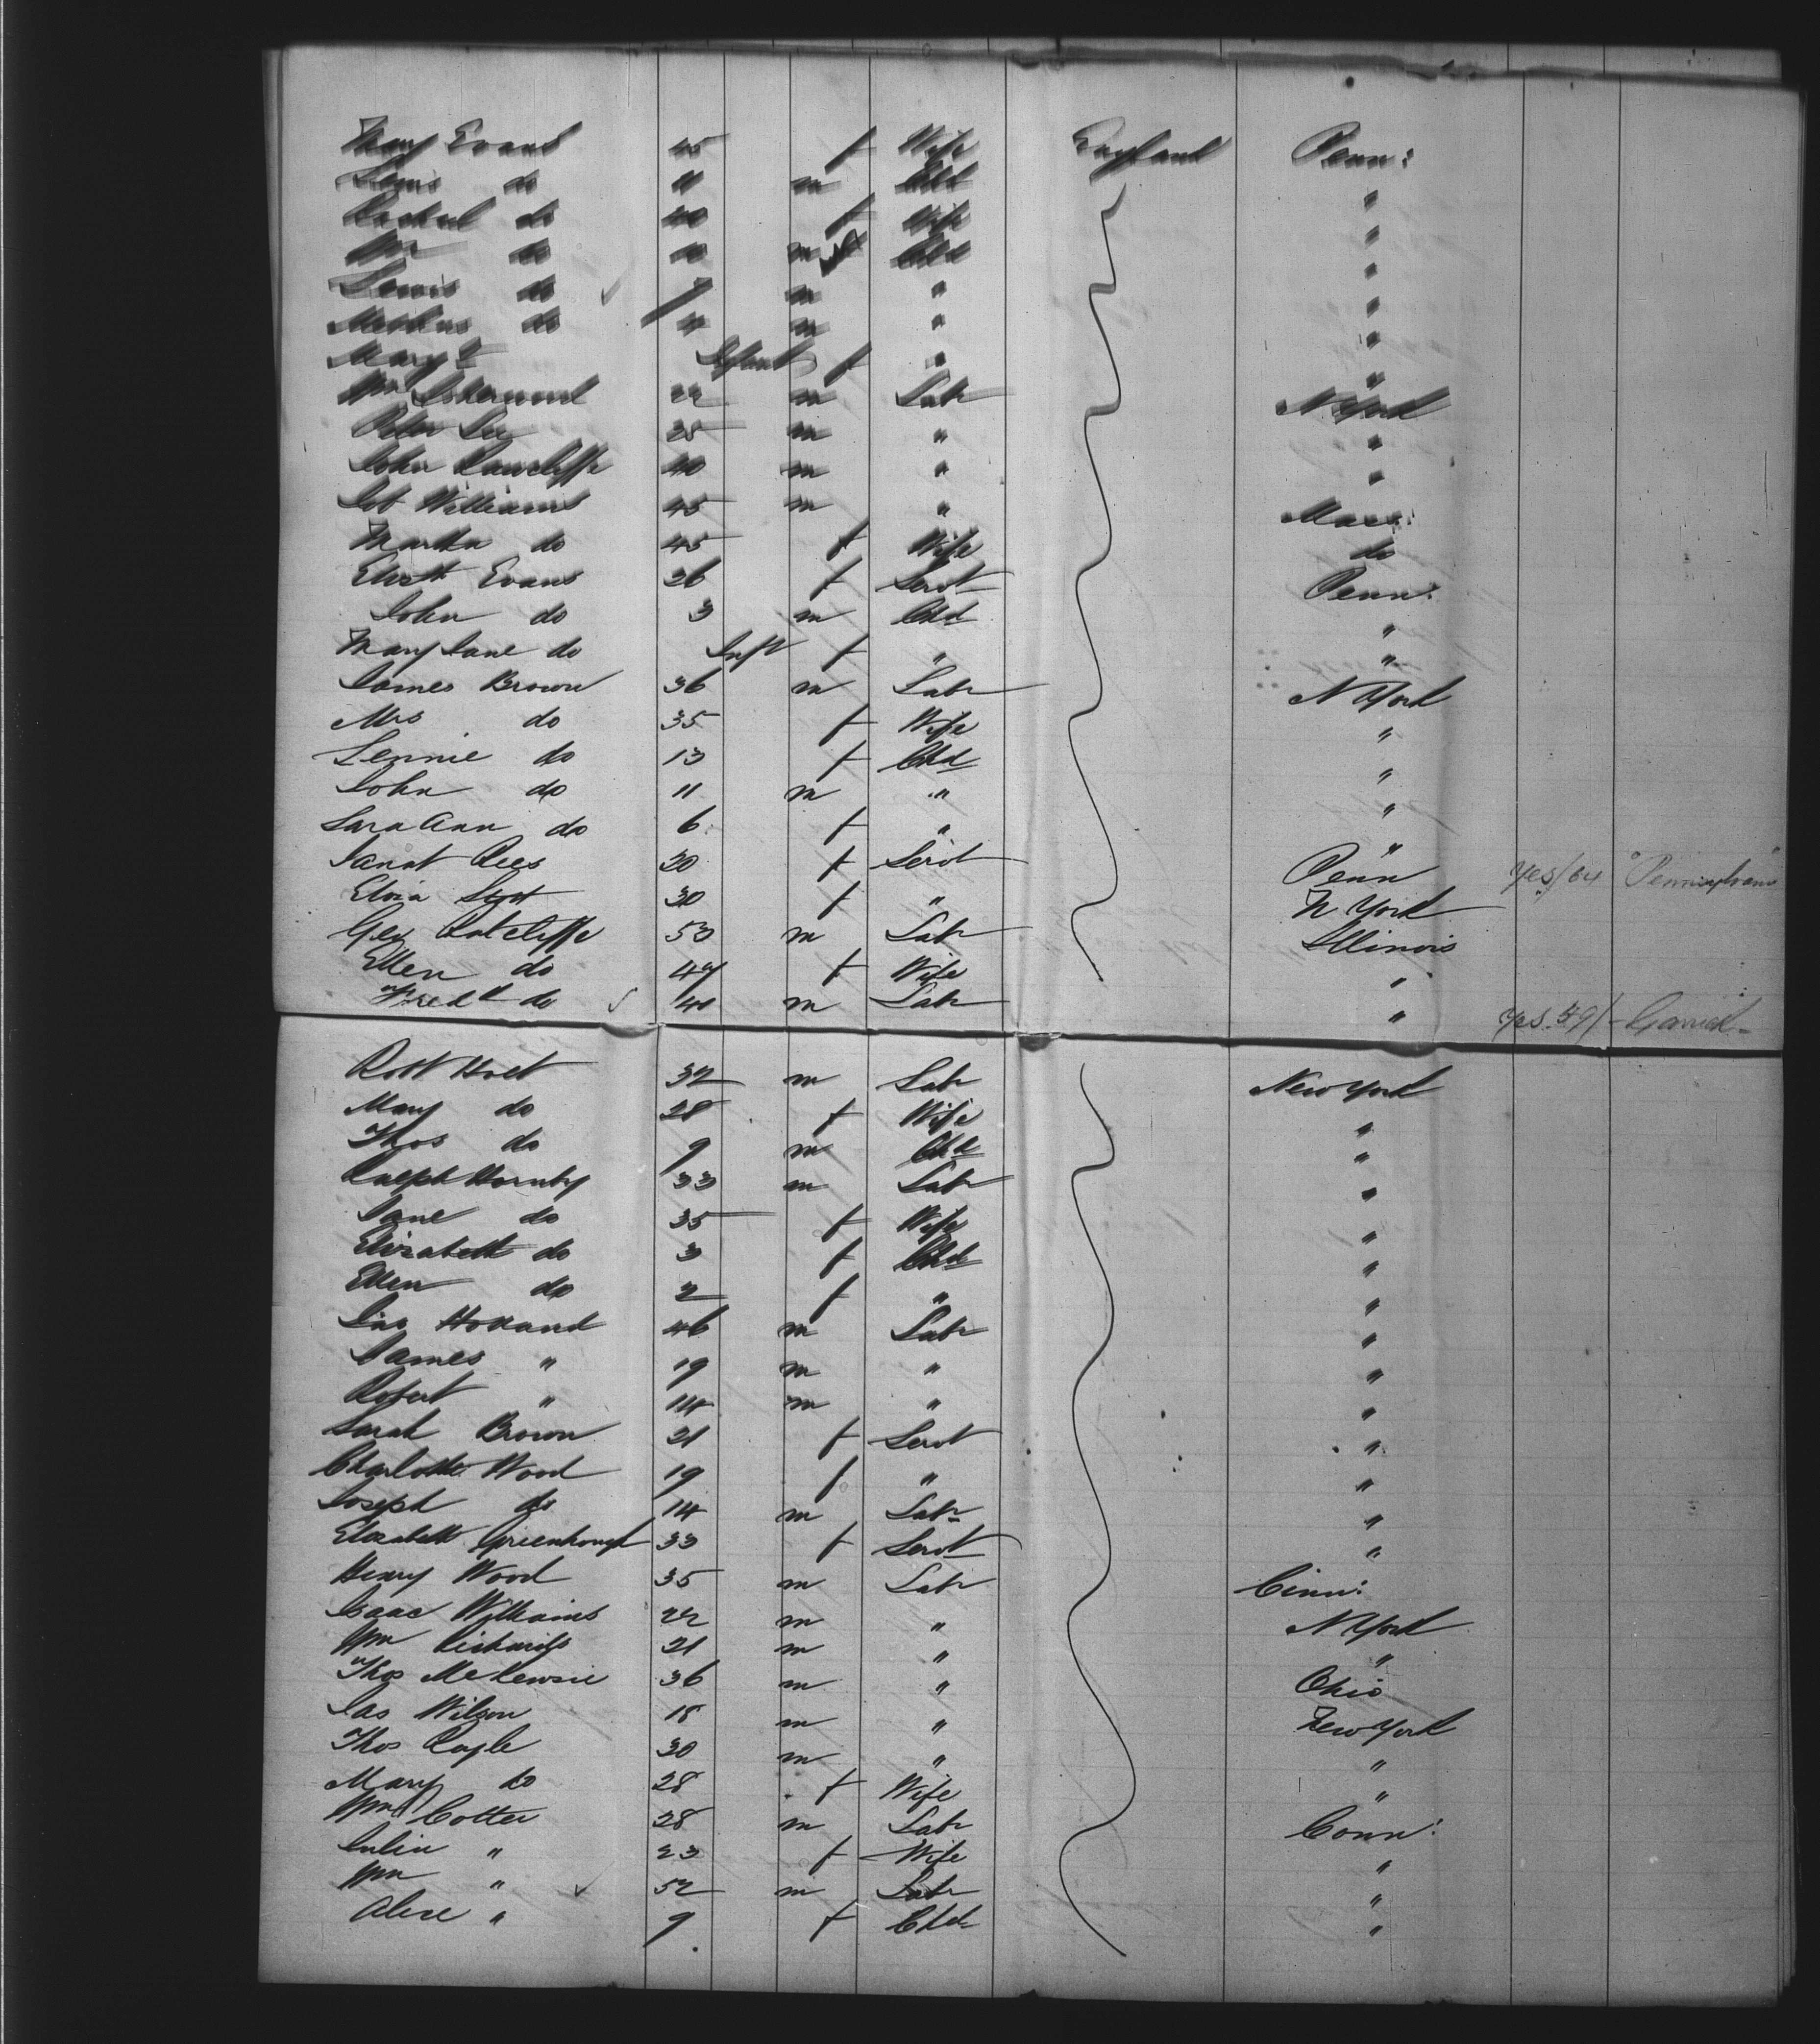 Mary Evans 45 f Wife England Penn:
Lewis do 11 m Chd "
Rachel do 40 f Wife "
Wm do 10 m Chd "
Lewis do 7 m " "
do 4 m " "
Mary Infant f " "
Wm Isherwood 22 m Labr N York
Peter Lee 25 m " "
John Rawcliffe 40 m " "
Job Williams 45 m " Mass:
Martha do 45 f Wife do
Elizth Evans 26 f Servt Penn:
John do 3 m Chd "
Mary Jane do Inft f " "
James Brown 36 m Labr N York
Mrs do 35 f Wife "
Jennie do 13 f Chd "
John do 11 m " "
Sara Ann do 6 f " "
Janat Rees 20 f Servt Penn Yes/64 "Pennsylvania"
Eliza 30 f " N York
Geo Ratcliffe 53 m Labr Illinois
Ellen do 47 f Wife "
Fredk do 40 m Labr " Yes. 59/-
Robt Holt 32 m Labr New York
Mary do 28 f Wife "
Thos do 9 m Chd "
Ralph Hornby 33 m Labr "
Jane do 35 f Wife "
Elizabeth do 3 f Chd "
Ellen do 2 f " "
Jas Holland 46 m Labr "
James " 19 m " "
Robert " 14 m " "
Sarah Brown 21 f Servt "
Charlotte Wood 19 f " "
Joseph do 14 m Labr "
Elizabeth Greenhough 33 f Servt "
Henry Wood 35 m Labr Cinn:
Isaac Williams 22 m " N York
Wm Richards 21 m " "
Thos McKensie 36 m " Ohio
Jas Wilson 18 m " New York
Thos Ragle 30 m " "
Mary do 28 f Wife "
Wm Cotter 28 m Labr Conn:
Julia " 23 f Wife "
Wm " 52 m Labr "
Alice " 9 f Chd "